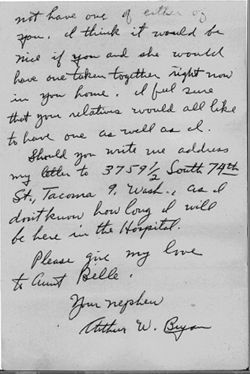 not have one of either of
you. I think it would be
nice if you and she would
have one taken together right now
in your home. I ful sure
that your relatives would all like
to have one as well as I.
Should you write me address
my letter to 3759 1/2 South 74th
St., Tacoma 9, Wash., as I
don't know how long I will
be here in the Hospital.
Please give my love
to Aunt Belle.
Your nephew
Arthur W. Bryan